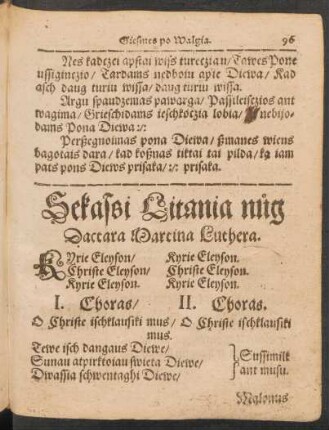 Giesmes po Walgia. 96
Nes kadczei apstai wiss tureczian/ Tawes Pone
ussiginczio/ Tardams nedboiu apie Diewa/ Kad
asch daug turiu wissa/ daug turiu wissa.
Argu spaudzemas pawarga/ Passileisczios ant
wagima/ Grieschidams ieschkoczia lobia/ nebijo-
dams Pona Diewa :/:
Perßegnoimas pona Diewa/ ßmanes wiens
bagotais dara/ kad koßnas tiktai tai pilda/ ką iam
pats pons Diews prisaka/ :/: prisaka.
Sekassi Litania nůg
Dactara Martina Luthera.
KYrie Eleyson/ Kyrie Eleyson.
Christe Eleyson/ Christe Eleyson.
Kyrie Eleyson. Kyrie Eleyson.
I. Choras/ II. Choras.
O Christe ischklausiki mus/ O Christe ischklausiki
mus.
Tewe isch dangaus Diewe/
Sunau atpirktoiau swieta Diewe/
Dwassia schwentaghi Diewe/
Sussimilk
ant musu.
Malonus